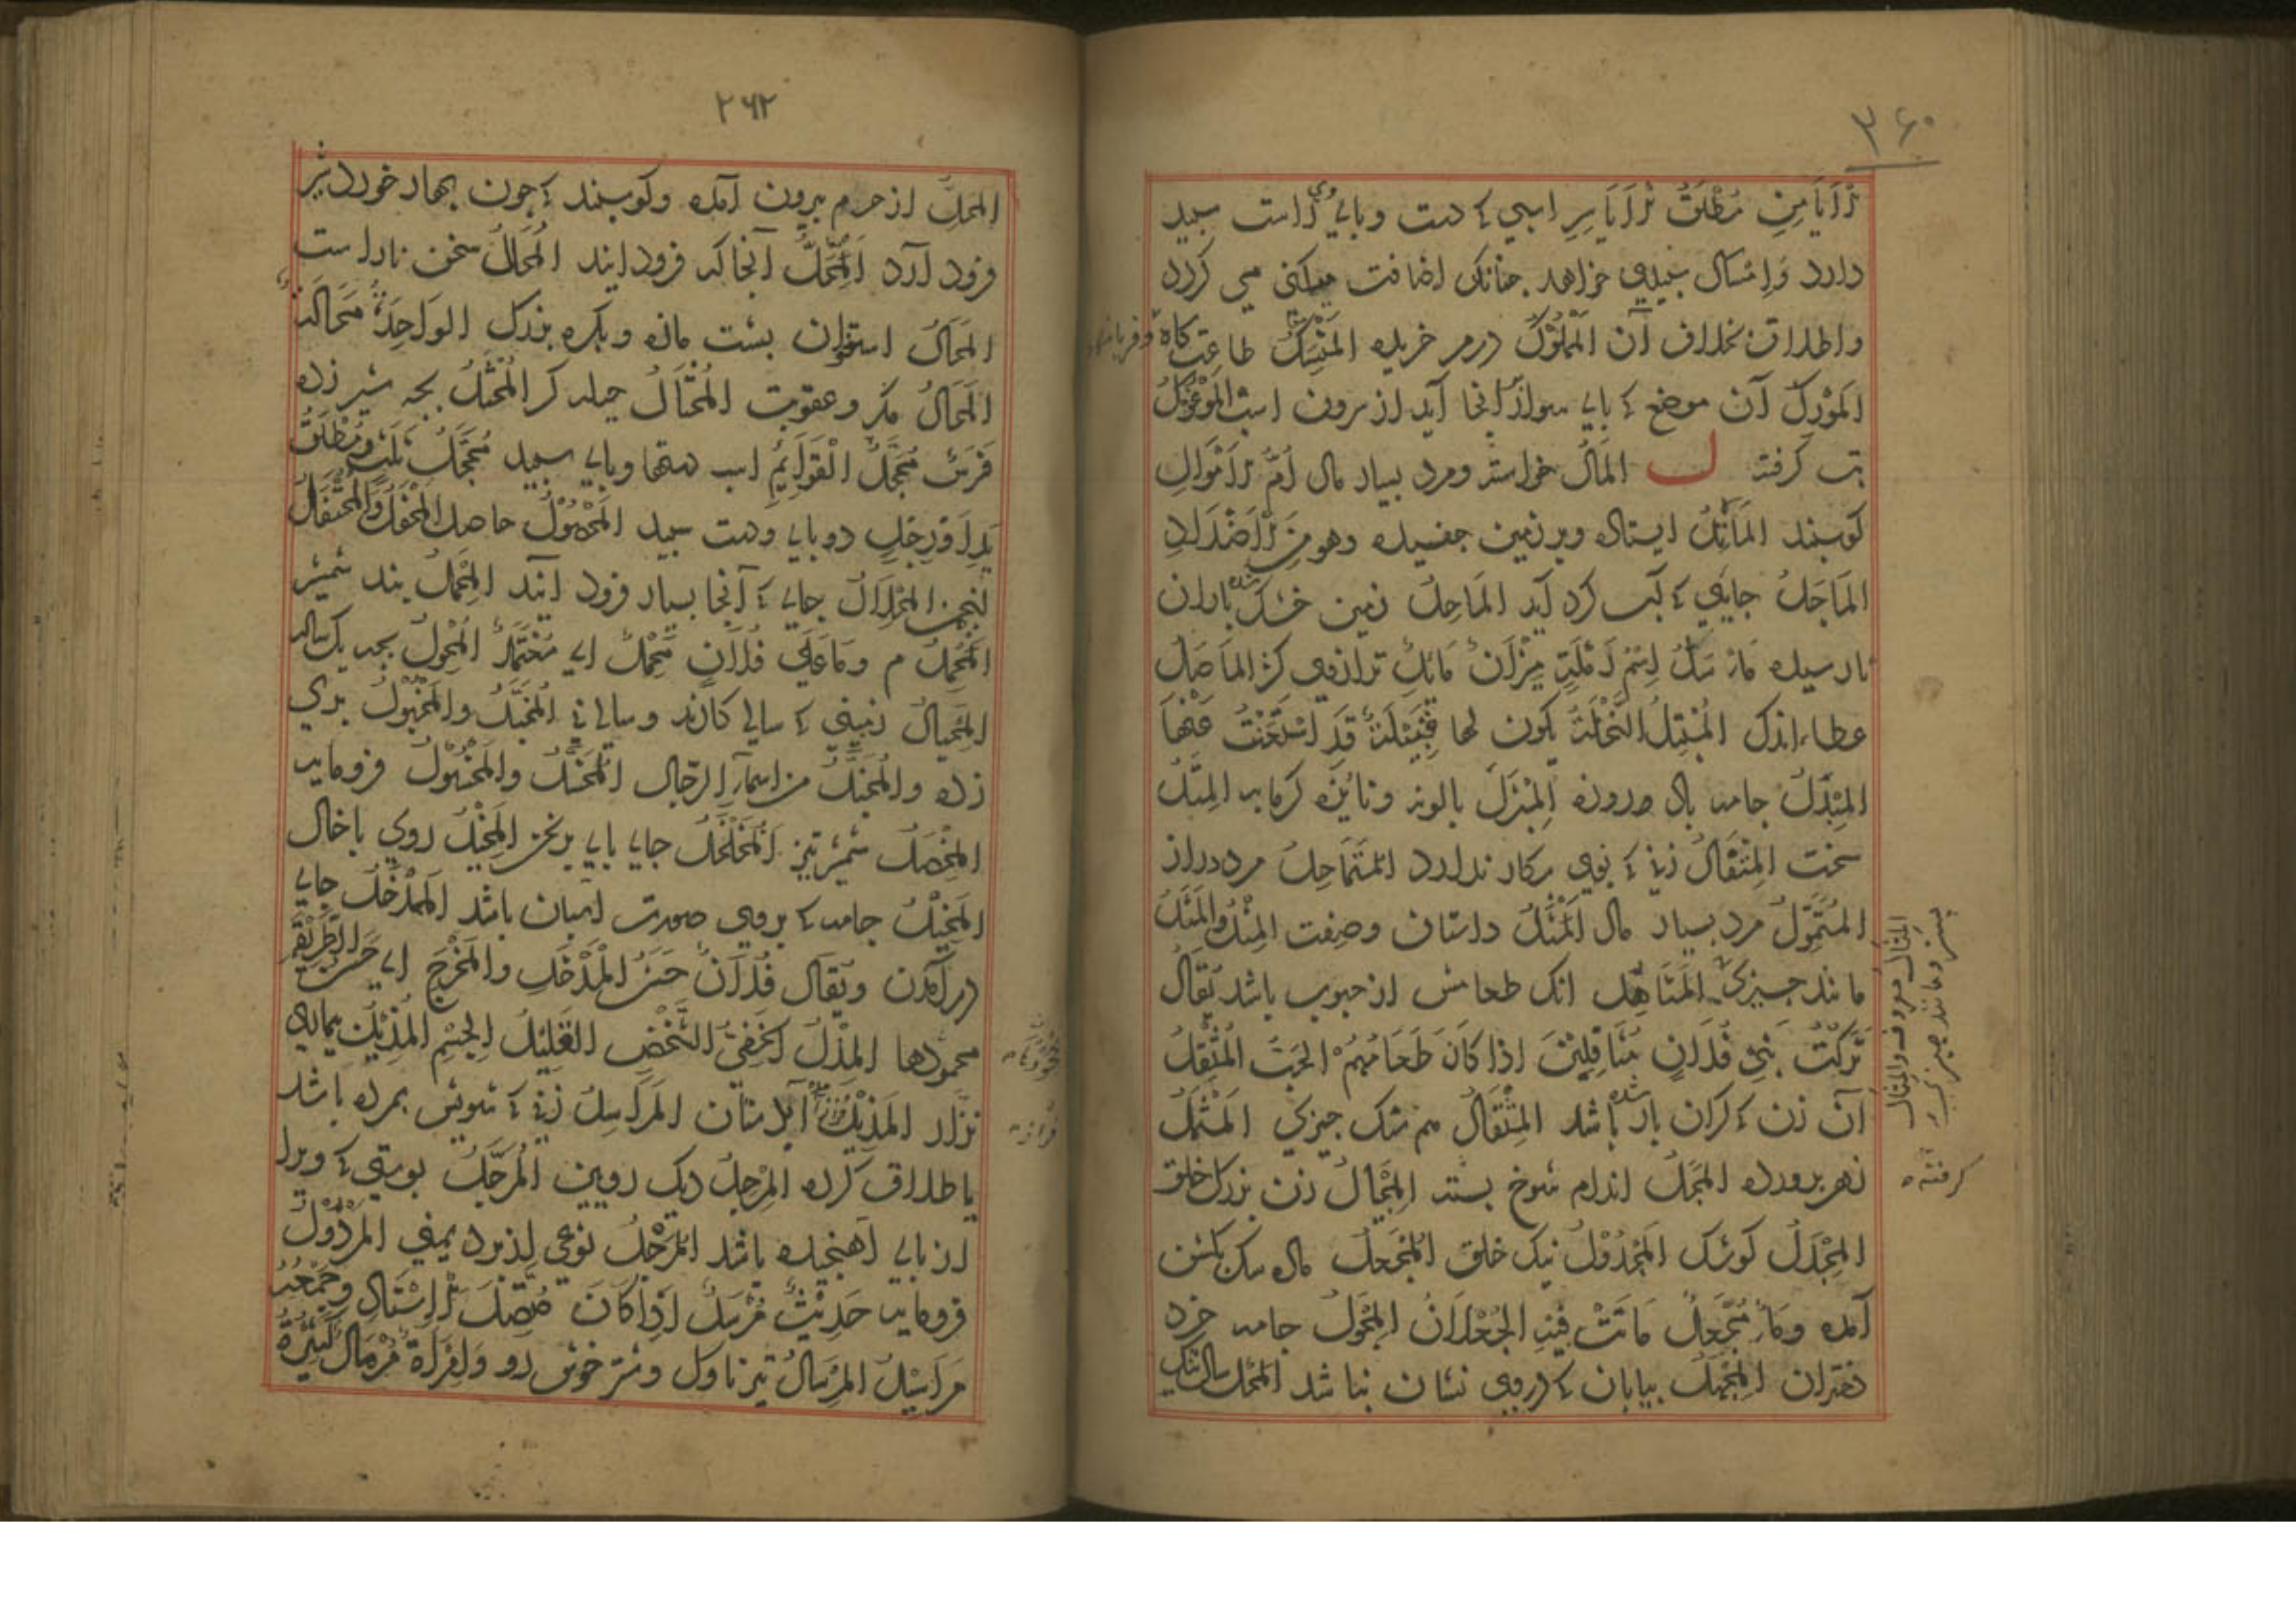 ۳۶۰
الایامن مطلق الایاسر اسپی که دست و پای وی راست سپید
دارد وامسال سپیدی خواهد چنانک اضافت میکنی می کردد
واطلاق بخلاف آن المملوک درم خریده المنسک طاعت کاه
المورک آن موضع که پای سوار آنجا آید از برون است الموعوک
تب کرفته ل المال خواسته ومرد بسیار مال ام الاموال
کوسپند الماثل ایستاده وبر زمین چفسیده وهو من الاضداد
الماجل جایی که آب کرد آید الماحل زمین خشک شده باران
نارسیده ماسل اسم رملة میزان مائل ترازوی کژ الماصل
عطاء اندک المبتل النخلة یکون لها فسیلة قد استغنت عنها
المبذل جامه باد روزه المبزل پالونه ونایزه کرمابه المتل
سخت المتفال زنی که بوی بکار ندارد المتماحل مرد دراز
المتمول مرد بسیار مال المثل داستان وصفت المثل والمثل
مانند چیزی المثافل انک طعامش از حبوب باشد یقال
ترکت بنی فلان مثافلین اذا کان طعامهم الحب المثقل
آن زن که کران بار شده باشد المثقال هم سنک چیزی المثمل
زهر پرورده المجل اندام شوخ بسته المجبال زن بزرک خلق
المجدل کوشک المجدول نیک خلق المجعل ماده سک بکشن
آمده وماء مجعل ماتت فیه الجعلان المجول جامه خرد
دختران المجهل بیابان که دروی نشان نباشد المحل سال تنک
المثال معروف والمثال
بستر ومانند چیزی
کرفته
۲۶۲
المحل از حرم بیرون آمده وکوسپند که چون بهار خورد شیر
فرود آرد المحل آنجا که فرود ایند المحال سخن ناراست
المحال استخوان پشت مازه وبکره بزرک الواحدة محالة
المحال مکر وعقوبت المحتال حیله کر المحثل بچه شیر زده
فرس محجل القوایم اسب دستها وپای سپید محجل ثلث ومطلق
ید او رجل دو پای ودست سپید المحصول حاصل المحفل والمحتفل
انجمن المحلال جای که آنجا بسیار فرود آیند المحمل بند شمشیر
المحمل م وما علی فلان محمل ای معتمد المحول بچه یک ساله
المحیال زمینی که سالی کارند وسالی نی المخبل والمخبول پری
زده والمخبل من اسماء الرجال المخسل والمخسول فرومایه
المخصل شمشیر تیز المخلخل جای پای برنجن المخیل روی باخال
المخیل جامه که بروی صورت اسبان باشد المدخل جای
درآمدن ویقال فلان حسن المدخل والمخرج ای حسن الطریقة
محمودها المذل الخفی الشخص القلیل الجسم المذیل بیمار
نزار المذیل آبدستان المراسل زنی که شویش بمرده باشد
یا طلاق کرده المرجل دیک رویین المرجل پوستی که ویرا
از پای آهنجیده باشد المرجل نوعی از برد یمنی المرذول
فرومایه حدیث مرسل اذا کان متصل الاسناد وجمعه
مراسیل المرسال تیر ناوک وشتر خوش رو وامراة مرمال کثیرة